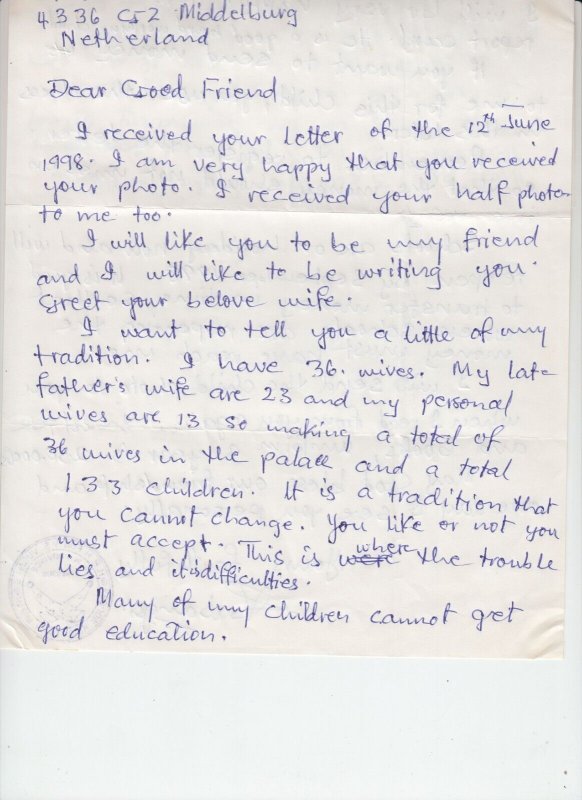 4336 GZ Middelburg
Netherland
Dear Good Friend
I received your letter of the 12th June
1998. I am very happy that you received
your photo. I received your half photo
to me too.
I will like you to be my friend
and I will like to be writing you.
Greet your belove wife.
I want to tell you a little of my
tradition. I have 36. wives. My late
father's wife are 23 and my personal
wives are 13 so making a total of
36 wives in the palace and a total
133 children. It is a tradition that
you cannot change. You like or not you
must accept. This is where the trouble
lies and its difficulties.
Many of my children cannot get
good education.